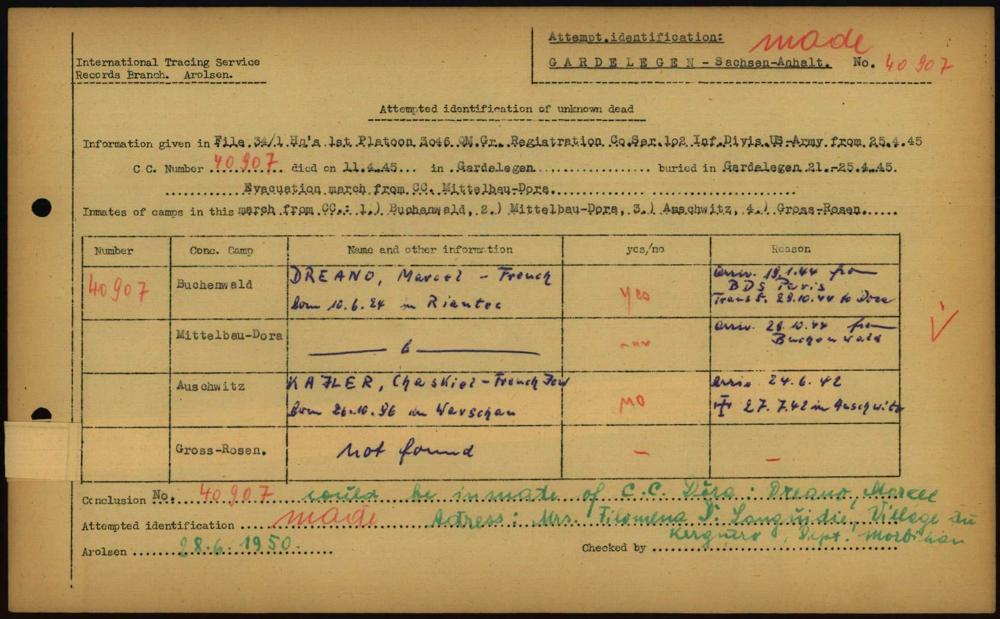 International Tracing Service
Records Branch. Arolsen.
Attempt.identification: made
GARDELEGEN - Sachsen-Anhalt. No. 40907
Attempted identification of unknown dead
Information given in File 34/1 Hq's 1st Platoon 3046 QM.Gr. Registration Co.Ser.102 Inf.Divis.US-Army from 25.4.45
C.C. Number 40907 died on 11.4.45 in Gardelegen buried in Gardelegen 21.-25.4.45.
Evacuation march from CC. Mittelbau-Dora.
Inmates of camps in this march from CC.: 1.) Buchenwald, 2.) Mittelbau-Dora, 3.) Auschwitz, 4.) Gross-Rosen.
Number Conc. Camp Name and other information yes/no Reason
40907 Buchenwald DREANO, Marcel - French yes arriv. 19.1.44 from
born 10.6.24 in Riantec BDS Paris
Transf. 28.10.44 to Dora
Mittelbau-Dora arriv. 28.10.44 from
Buchenwald
Auschwitz KAJLER, Chaskiel - French Jew no arriv. 24.6.42
born 26.10.96 in Warschau 27.7.42 in Auschwitz
Gross-Rosen. not found - -
Conclusion No. 40907 could be inmate of C.C. Dora: Dreano, Marcel
Attempted identification made Adress: Mrs. Filomena Village du
Arolsen 28.6.1950. Dept. Morbihan
Checked by